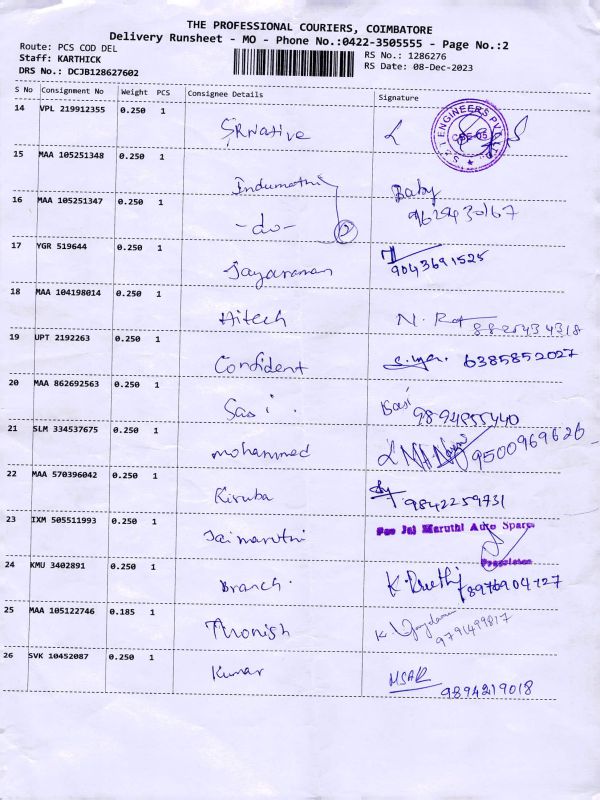 THE PROFESSIONAL COURIERS, COIMBATORE
Delivery Runsheet - MO - Phone No.:0422-3505555 - Page No.:2
Route: PCS COD DEL
RS No.: 1286276
Staff: KARTHICK
RS Date: 08-Dec-2023
DRS No.: DCJB128627602
S No Consignment No Weight PCS Consignee Details Signature
14 VPL 219912355 0.250 1 SRNative
S.Z.I ENGINEERS PVT. LTD
CBE-05
15 MAA 105251348 0.250 1 Indumathi Baby
16 MAA 105251347 0.250 1 -do- 9629430167
17 YGR 519644 0.250 1 Jayaraman 9043691525
18 MAA 104198014 0.250 1 Hitech N. Raj 8825434318
19 UPT 2192263 0.250 1 Confident 6385852027
20 MAA 862692563 0.250 1 Sasi. Sasi 9894855440
21 SLM 334537675 0.250 1 mohammed 9500969626
22 MAA 570396042 0.250 1 Kiruba 9842259731
23 IXM 505511993 0.250 1 Jaimaruthi For Jai Maruthi Auto Spares
Proprietor
24 KMU 3402891 0.250 1 Branch. 8976904727
25 MAA 105122746 0.185 1 Thonish 9791499817
26 SVK 10452087 0.250 1 Kumar MSAR 9894219018